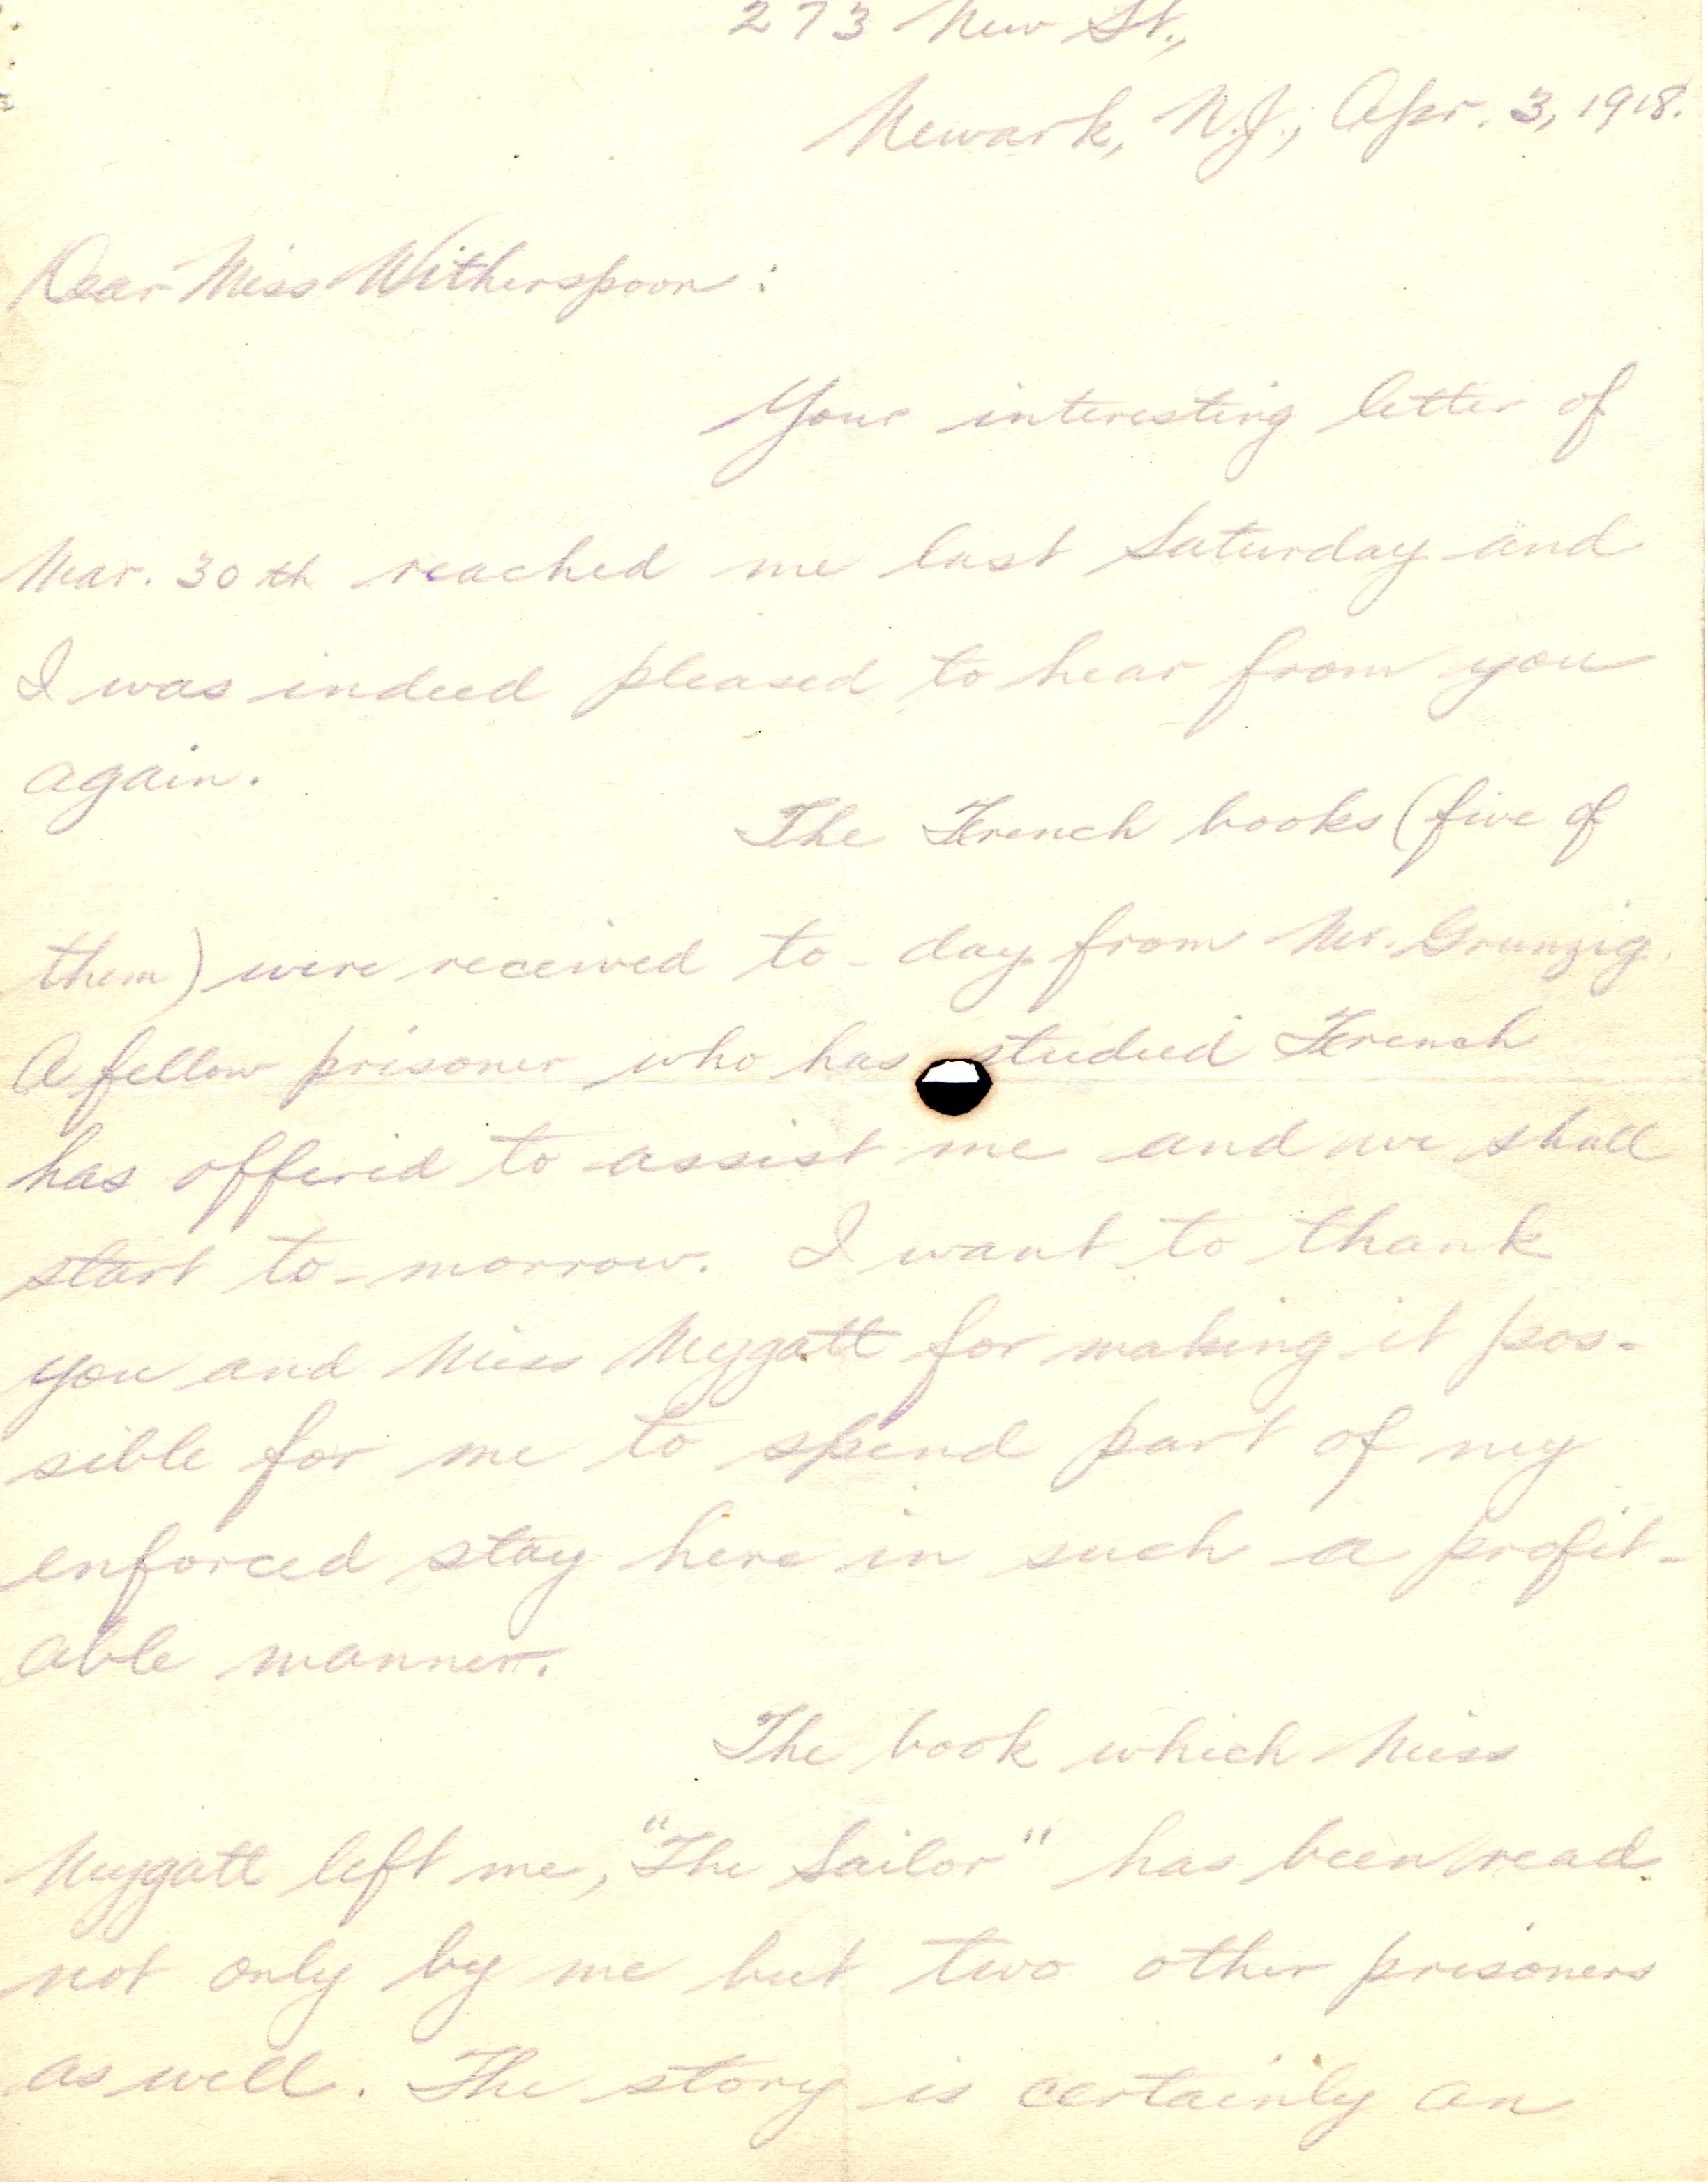 273 New St.,
Newark, N.J., Apr. 3, 1918.
Dear Miss Witherspoon:
Your interesting letter of
Mar. 30th reached me last Saturday and
I was indeed pleased to hear from you
again.
The French books (five of
them) were received to-day from Mr. Grunzig.
A fellow prisoner who has studied French
has offered to assist me and we shall
start to-morrow. I want to thank
you and Miss Mygatt for making it pos-
sible for me to spend part of my
enforced stay here in such a profit-
able manner.
The book which Miss
Mygatt left me, "The Sailor" has been read
not only by me but two other prisoners
as well. The story is certainly an